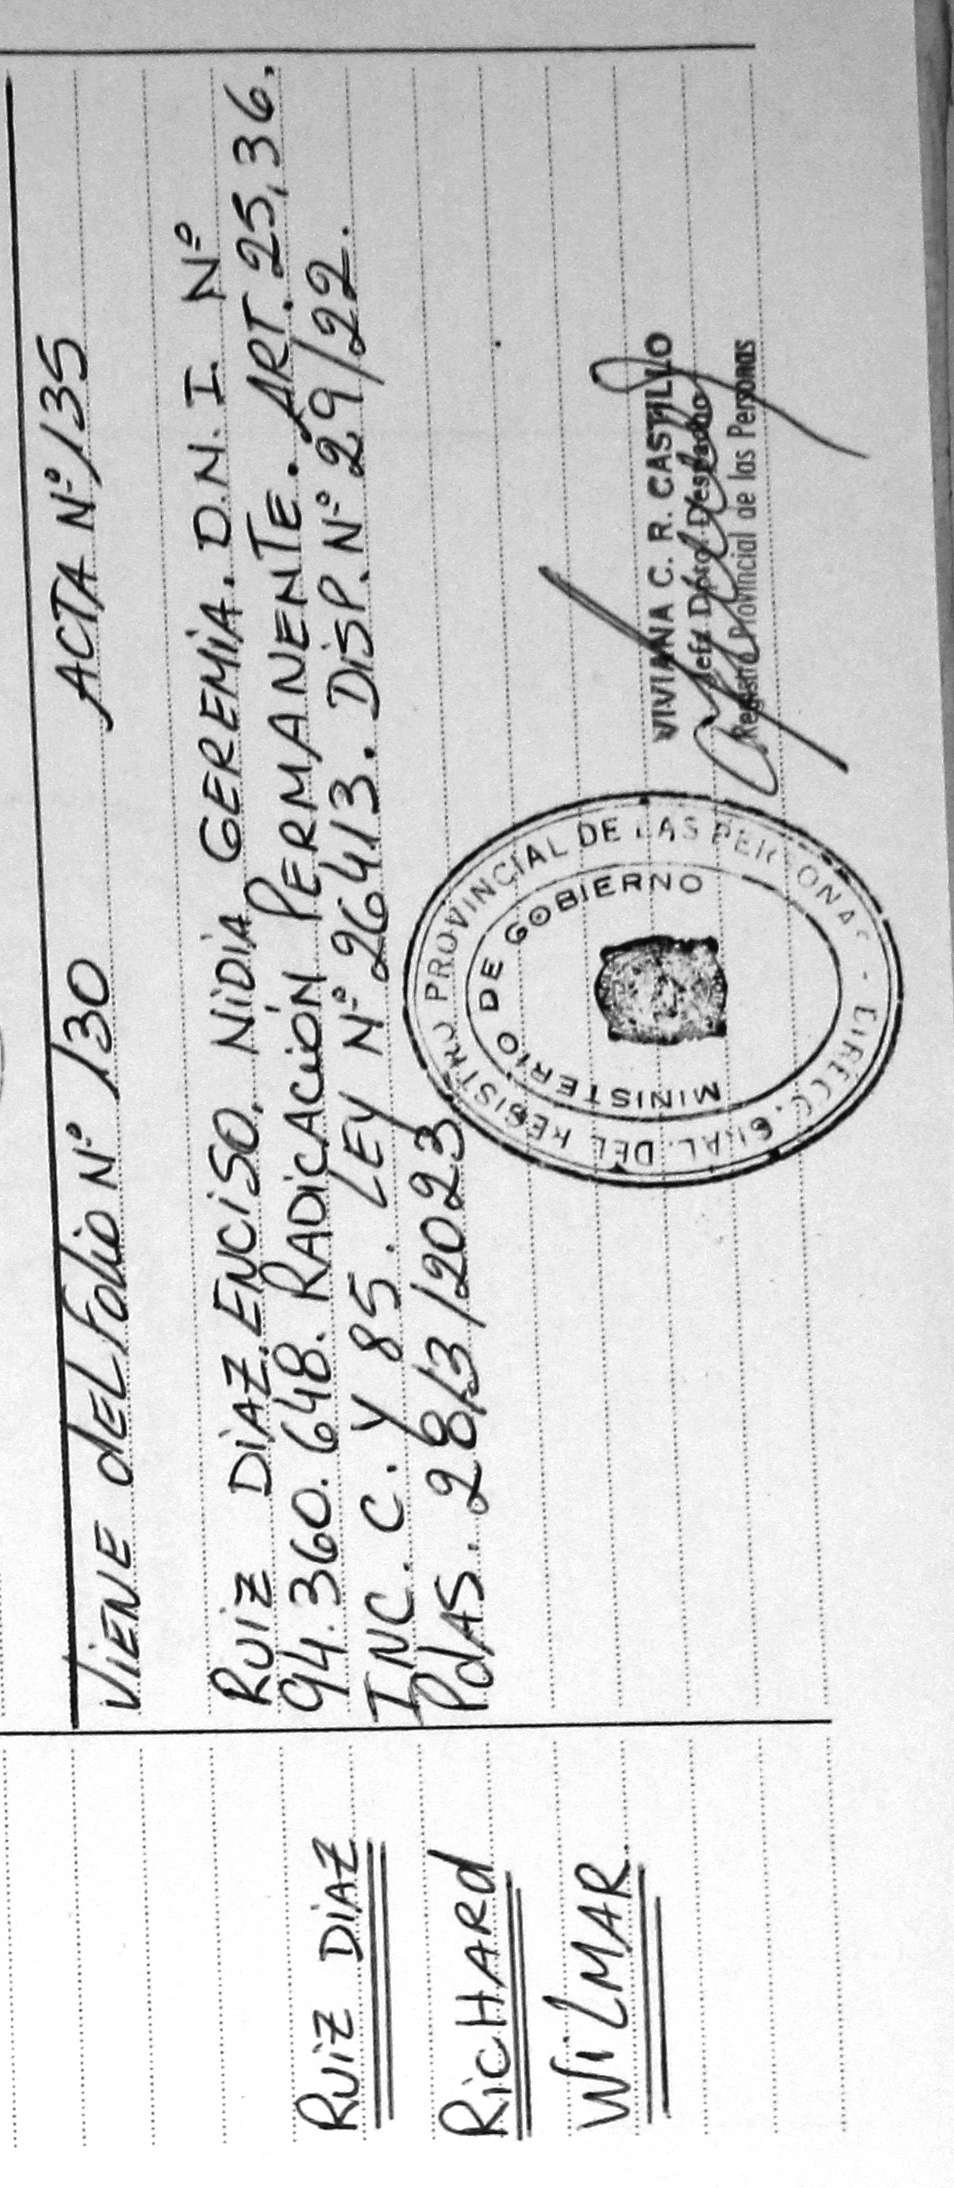 VIENE dEL FoLio Nº 130 ACTA Nº 135
RUIZ DIAZ ENCISO, NIDIA GEREMIA. D.N.I. Nº
94.360.648. RADICACIÓN PERMANENTE. ART. 25, 36,
INC. C. Y 85. LEY Nº 26413. DISP. Nº 29/22.
PdAS. 28/3/2023
RUIZ DIAZ
RICHARd
WILMAR
DIRECC. GRAL. DEL REGISTRO PROVINCIAL DE LAS PERSONAS
MINISTERIO DE GOBIERNO
VIVIANA C. R. CASTILLO
Jefa Dpto. Despacho
Registro Provincial de las Personas